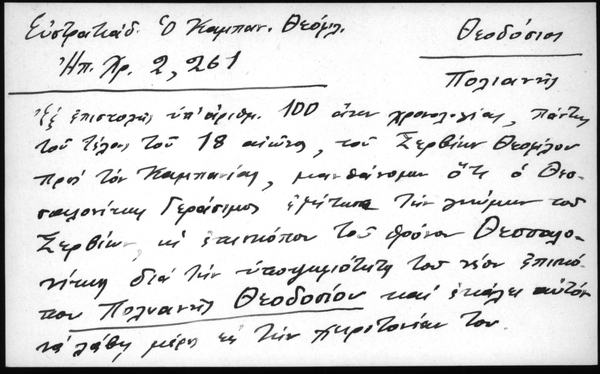 Εὐστρατιάδ. Ὁ Καμπαν. Θεόφιλ.
Θεοδόσιος
Ἠπ. Χρ. 2, 261
Πολιανῆς
Ἐξ ἐπιστολῆς ὑπ' ἀριθμ. 100 ἄνευ χρονολογίας, πάντως
τοῦ τέλους τοῦ 18 αἰῶνος, τοῦ Σερβίων Θεοφίλου
πρὸς τὸν Καμπανίας, μανθάνομεν ὅτι ὁ Θεσ-
σαλονίκης Γεράσιμος ἐζήτησε τὴν γνώμην τοῦ
Σερβίων, ὡς ἐπισκόπου τοῦ θρόνου Θεσσαλο-
νίκης διὰ τὴν ὑποψηφιότητα τοῦ νέου ἐπισκό-
που Πολιανῆς Θεοδοσίου καὶ ἐκάλει αὐτὸν
νὰ λάβῃ μέρος εἰς τὴν χειροτονίαν του.